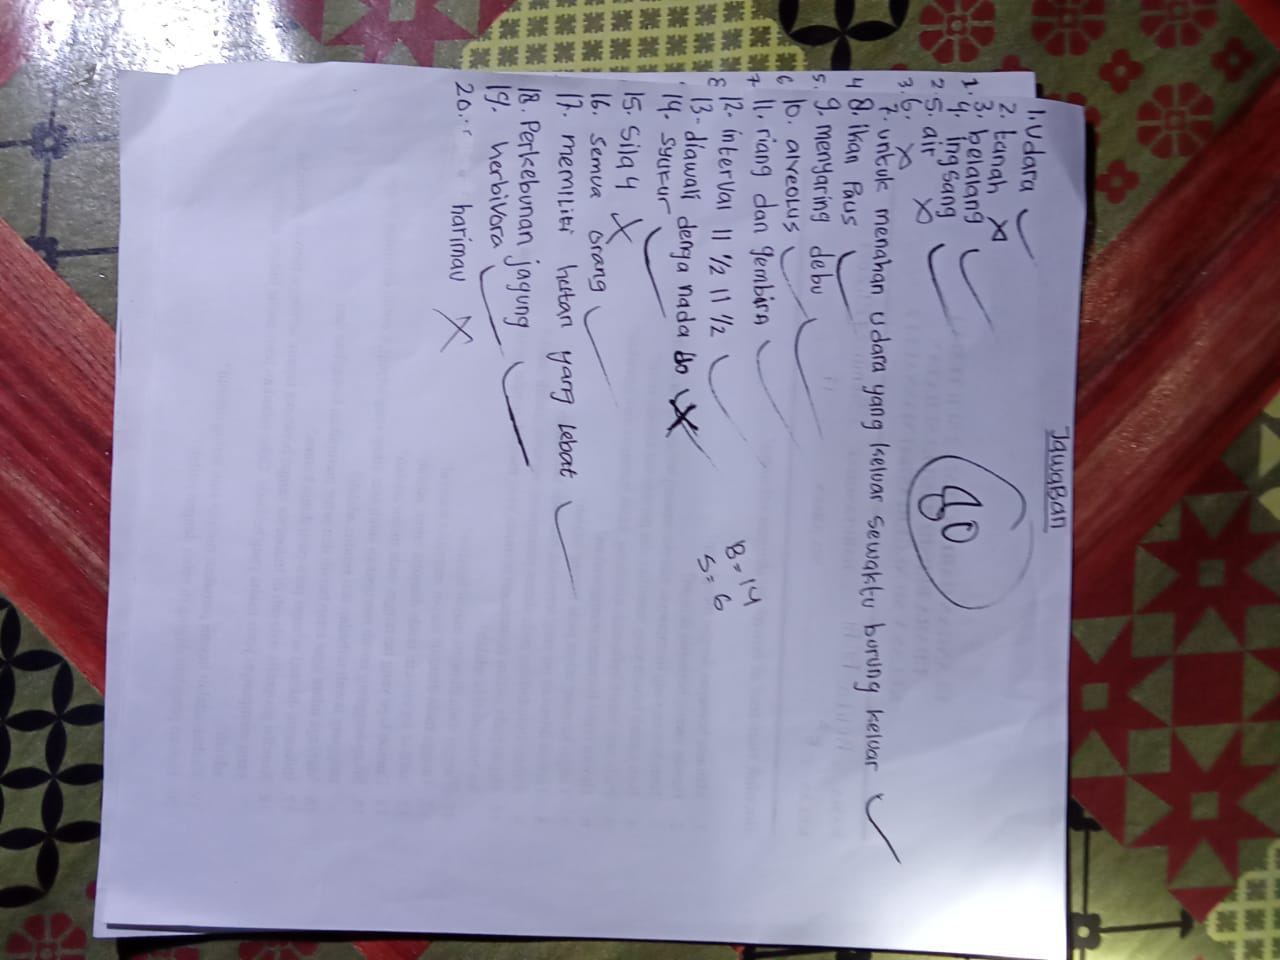 Jawaban
1. Udara
2. tanah
3. belalang
4. ingsang
5. air
6.
7. untuk menahan udara yang keluar sewaktu burung keluar
8. ikan Paus
9. menyaring debu
10. alveolus
11. riang dan gembira
12. interval 1 1 1/2 1 1 1/2
13. diawali denga nada do
14. syukur
15. Sila 4
16. semua orang
17. memiliki hutan yang lebat
18. Perkebunan jagung
19. herbivora
20. harimau
80
B = 14
S = 6
1.
2
3.
4
5.
6
7
8